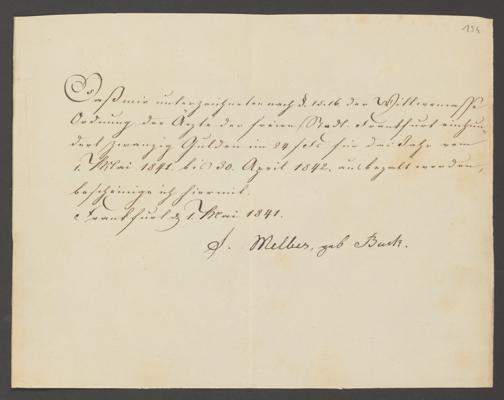 194
Daß mir unterzeichneten nach §. 15. 16 der Wittwencasse
Ordnung der Ärzte der freien Stadt Frankfurt einhun-
dert zwanzig Gulden im 24 fuß für das Jahr vom
1. Mai 1841. bis 30. April 1842. ausbezalt worden,
bescheinige ich hiermit.
Frankfurt d 1. Mai 1841.
Melber, geb Buck.